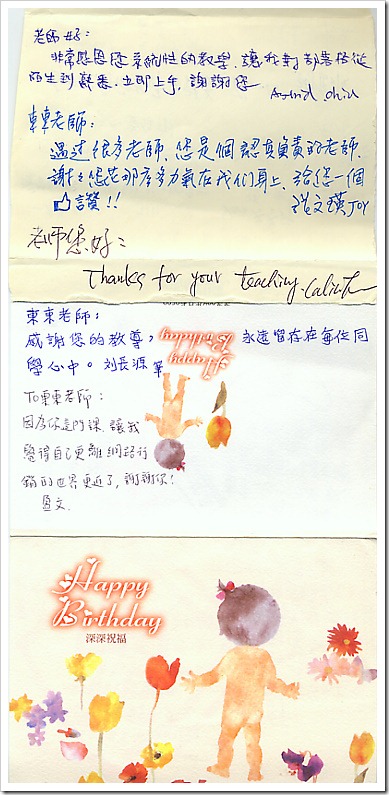 老師好:
非常感恩您系統性的教學,讓我對部落格從
陌生到熟悉,立即上手,謝謝您
Astrid chiu
東東老師:
遇过很多老師,您是個認真負責的老師,
謝謝您花那麼多力氣在我們身上,給您一個
讚!!
文瑛 Joy
老師您好:
Thanks for your teaching.
東東老師:
感謝您的教導,永遠留存在每位同
學心中。劉長源 筆
Happy
Birthday
TO東東老師:
因為你這門課,讓我
覺得自己更離網路行
銷的世界更近了,謝謝你!
盈文.
Happy
Birthday
深深祝福